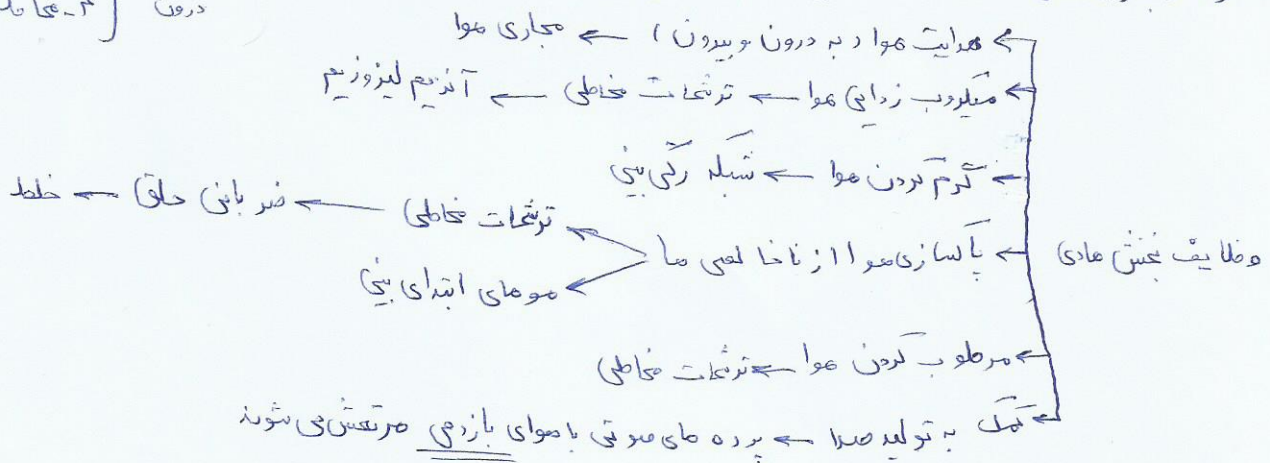 درون [ ۳-مخا
هدایت هوا ( به درون و بیرون ) ← مجاری هوا
میکروب زدایی هوا ← ترشحات مخاطی ← آنزیم لیزوزیم
گرم کردن هوا ← شبکه رگی بینی
وظایف بخش هادی ← پاکسازی هوا از ناخالصی ها ← ترشحات مخاطی ← ضربانی حلق ← خلط
← موهای ابتدای بینی
مرطوب کردن هوا ← ترشحات مخاطی
کمک به تولید صدا ← پرده های صوتی با هوای بازدمی مرتعش می شوند